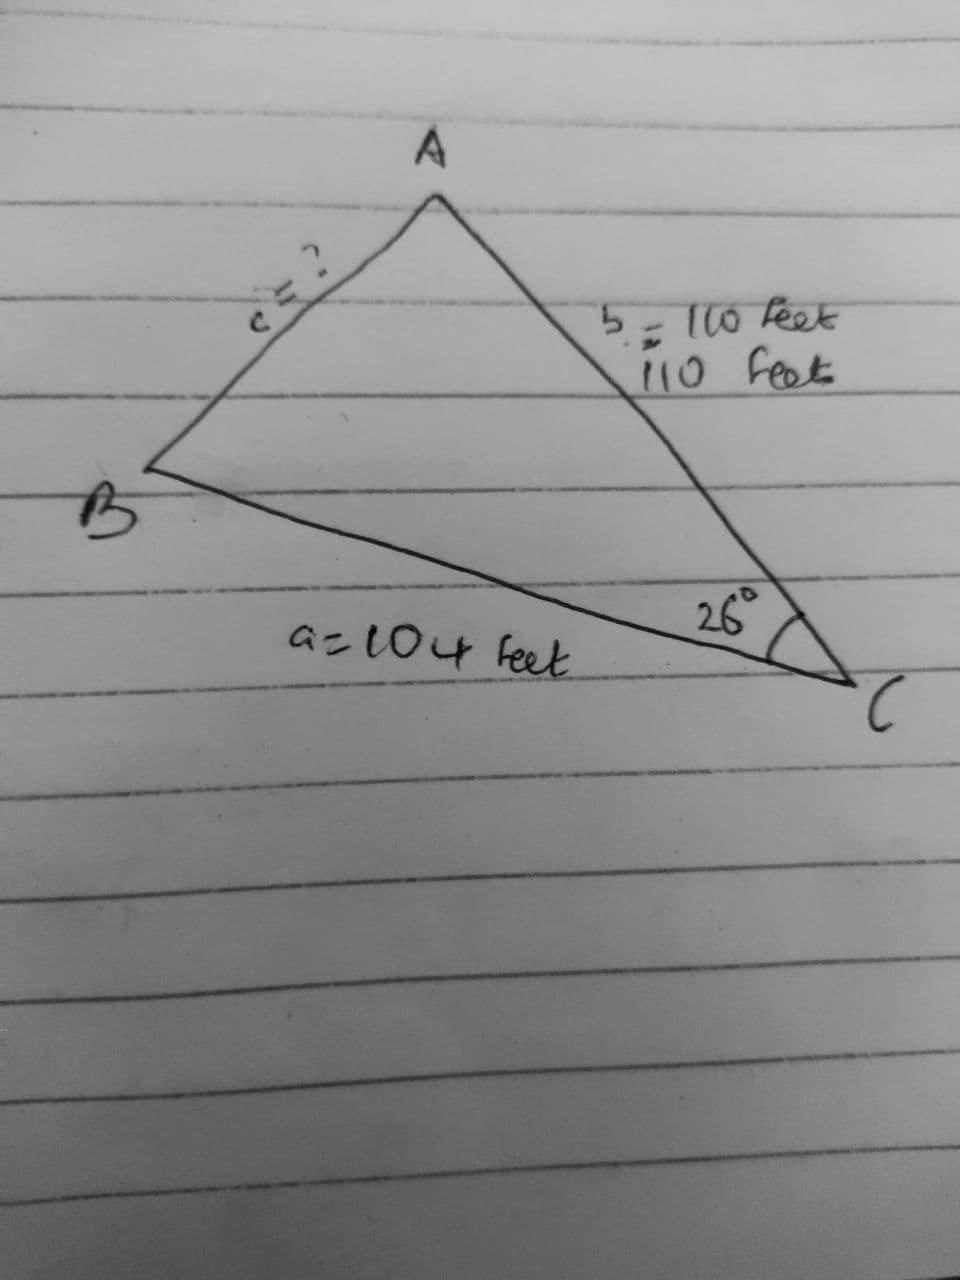 A
c = ?
b = 110 feet
110 feet
B
26°
a = 104 feet
C